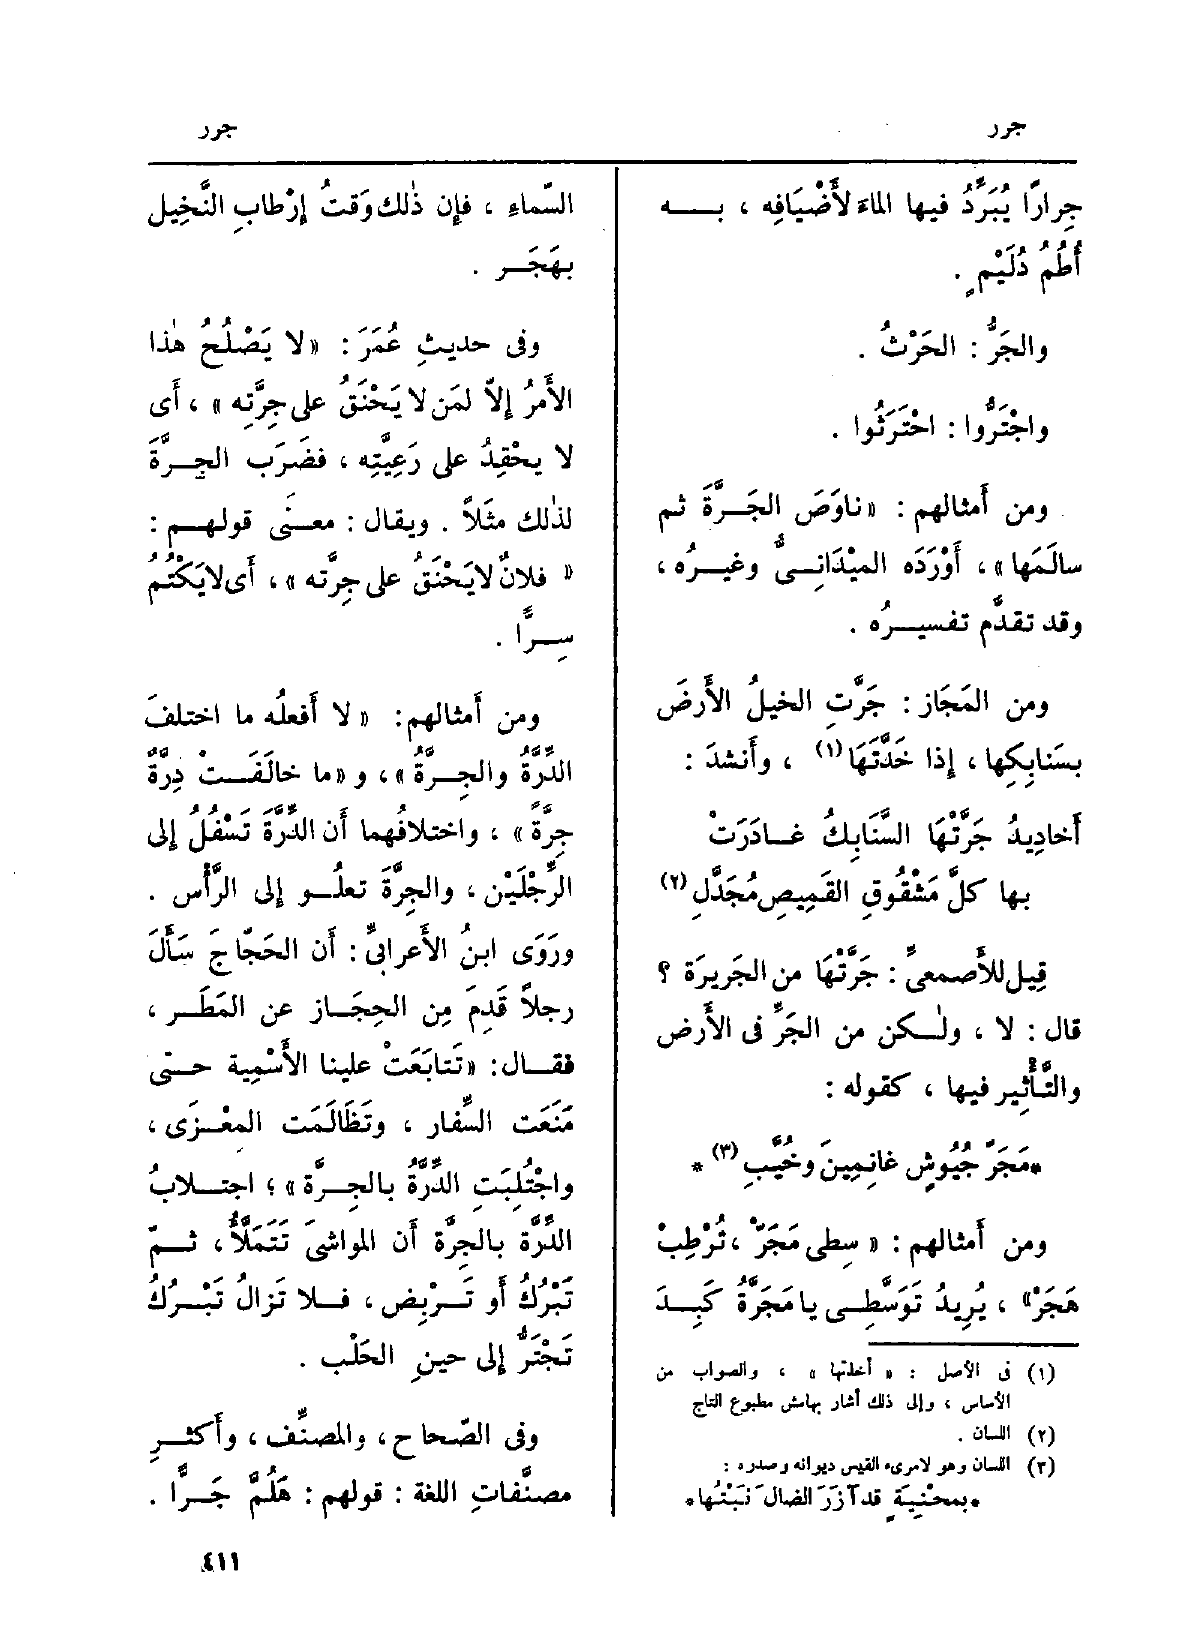 جرر
جرر
جِرارًا يُبَرَّدُ فيها الماءُ لأَضْيَافِه ، بــه
أُطُمُ دُلَيْمٍ .
والجَرُّ : الحَرْثُ .
واجْتَرُّوا : احْتَرَثُوا .
ومن أَمثالهم : «ناوَصَ الجَـرَّةَ ثم
سالَمَها» ، أَوْرَدَه المَيْدَانِـىُّ وغيـرُه ،
وقد تقدَّم تفسيـرُه .
ومن المَجَاز : جَرَّتِ الخيلُ الأَرضَ
بسَنابِكِها ، إِذا خَدَّتَهَا (١) ، وأَنشدَ :
أَخادِيدُ جَرَّتْهَا السَّنَابِكُ غـادَرَتْ
بها كلَّ مَشْقُوقِ القَمِيصِ مُجَدَّلِ (٢)
قِيل للأَصمعىِّ : جَرَّتْهَا من الجَرِيرَة ؟
قال : لا ، ولٰـكن من الجَرِّ فى الأَرض
والتَّأْثِيرِ فيها ، كقوله :
*مَجَرّ جُيُوشٍ غانِمِينَ وخُيَّبِ (٣) *
ومن أَمثالهم : « سِطِى مَجَرّ ، تُرْطِبْ
هَجَرْ» ، يُرِيدُ تَوَسَّطِـى يا مَجَرَّةُ كَبِـدَ
(١) فى الأصل : « أخدتها » ، والصواب من
الأساس ، وإلى ذلك أشار بهامش مطبوع التاج
(٢) اللسان .
(٣) اللسان وهو لامرىء القيس ديوانه وصدره :
*بمحْنِيَةٍ قد آزَرَ الضالَ نَبْتُها*
السّماءِ ، فإِن ذٰلك وَقتُ إِرْطابِ النَّخِيل
بهَجَـر .
وفى حديثِ عُمَرَ : «لا يَصْلُحُ هٰذا
الأَمرُ إِلاّ لمَن لا يَحْنَقُ على جِرَّتِه » ، أَى
لا يحْقِدُ على رَعِيَّتِه ، فضَرَب الجِـرَّةَ
لذٰلك مثَلاً . ويقال : معـنَى قولهـم :
« فلانٌ لا يَحْنَقُ على جِرَّته » ، أَى لا يَكْتُمُ
سِـرًّا .
ومن أَمثالهم: « لا أَفعلُه ما اختلفَ
الدِّرَّةُ والجِـرَّةُ » ، و «ما خالَفَـتْ دِرَّةٌ
جِرَّةً » ، واختلافُهما أَن الدِّرَّةَ تَسْفُلُ إِلى
الرِّجْلَيْن ، والجِرَّةَ تعلُـو إِلى الرَّأْس .
ورَوَى ابنُ الأَعرابىِّ : أَن الحَجّاجَ سَأَلَ
رجلاً قَدِمَ مِن الحِجَـاز عن المَطَـر ،
فقـال: «تَتابَعَتْ علينا الأَسْمِية حـتى
مَنَعَت السِّفار ، وتَظَالَمَت المِعْـزَى ،
واجْتُلِبَتِ الدِّرَّةُ بالجِـرَّة » ؛ اجتـلابُ
الدِّرَّة بالجِرَّة أَن المواشىَ تَتَمَلَّأُ ، ثـمّ
تَبْرُكُ أَو تَـرْبِض ، فـلا تَزالُ تَبْـرُكُ
تَجْتَرُّ إِلى حينِ الحَلْب .
وفى الصّحاح ، والمصنِّف ، وأَكثـرِ
مصنَّفاتِ اللغة : قولهم : هَلُمَّ جَـرًّا .
٤١١